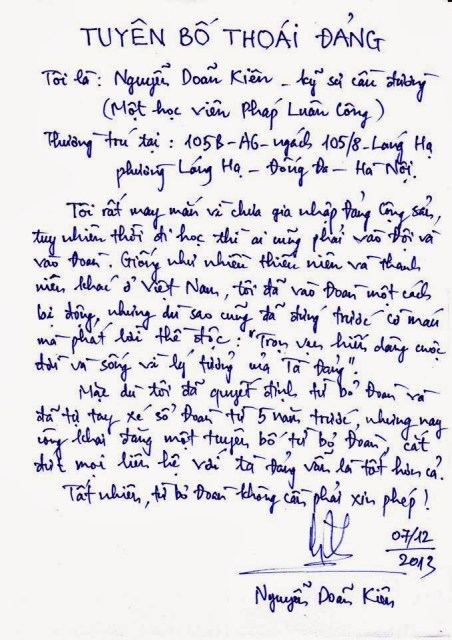 TUYÊN BỐ THOÁI ĐẢNG
Tôi là: Nguyễn Doãn Kiên - kỹ sư cầu đường
(Một học viên Pháp Luân Công)
Thường trú tại: 105B-A6-ngách 105/8-Láng Hạ
phường Láng Hạ - Đống Đa - Hà Nội.
Tôi rất may mắn vì chưa gia nhập Đảng Cộng sản,
tuy nhiên thời đi học thì ai cũng phải vào Đội và
vào Đoàn. Giống như nhiều thiếu niên và thanh
niên khác ở Việt Nam, tôi đã vào Đoàn một cách
bị động, nhưng dù sao cũng đã đứng trước cờ máu
mà phát lời thề độc: "Trọn vẹn hiến dâng cuộc
đời và sống vì lý tưởng của Tà Đảng".
Mặc dù tôi đã quyết định từ bỏ Đoàn và
đã tự tay xé sổ Đoàn từ 5 năm trước, nhưng nay
công khai đăng một tuyên bố từ bỏ Đoàn, cắt
đứt mọi liên hệ với tà Đảng vẫn là tốt hơn cả.
Tất nhiên, từ bỏ Đoàn không cần phải xin phép!
07/12
2013
Nguyễn Doãn Kiên